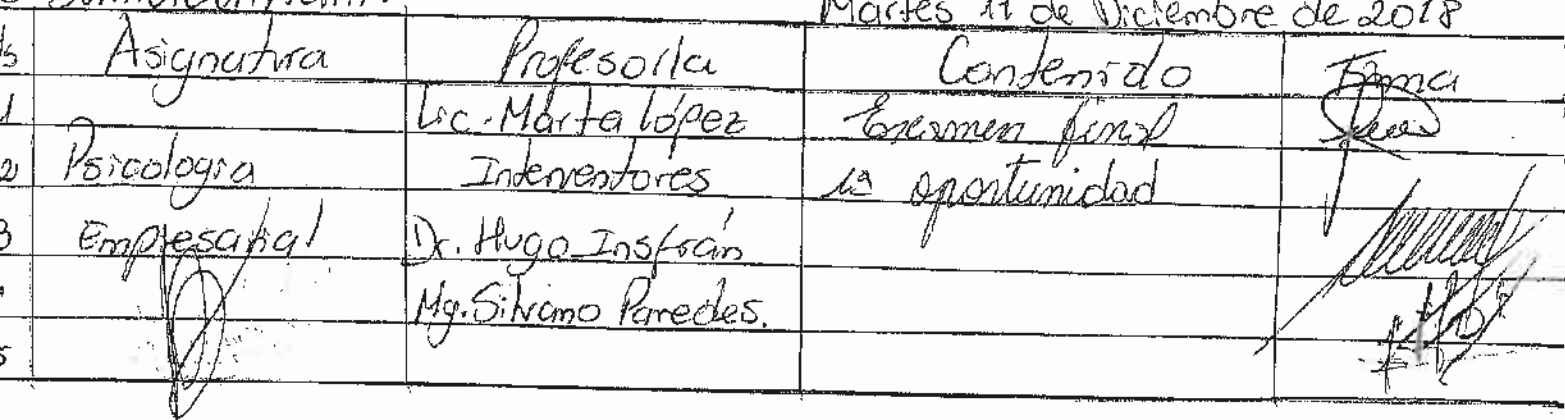 Martes 11 de Diciembre de 2018
Asignatura Profesor/a Contenido Firma
1 Lic. Marta López Examen final
2 Psicología Interventores 1ª oportunidad
3 Empresarial Dr. Hugo Insfrán
Mg. Silvano Paredes.
5